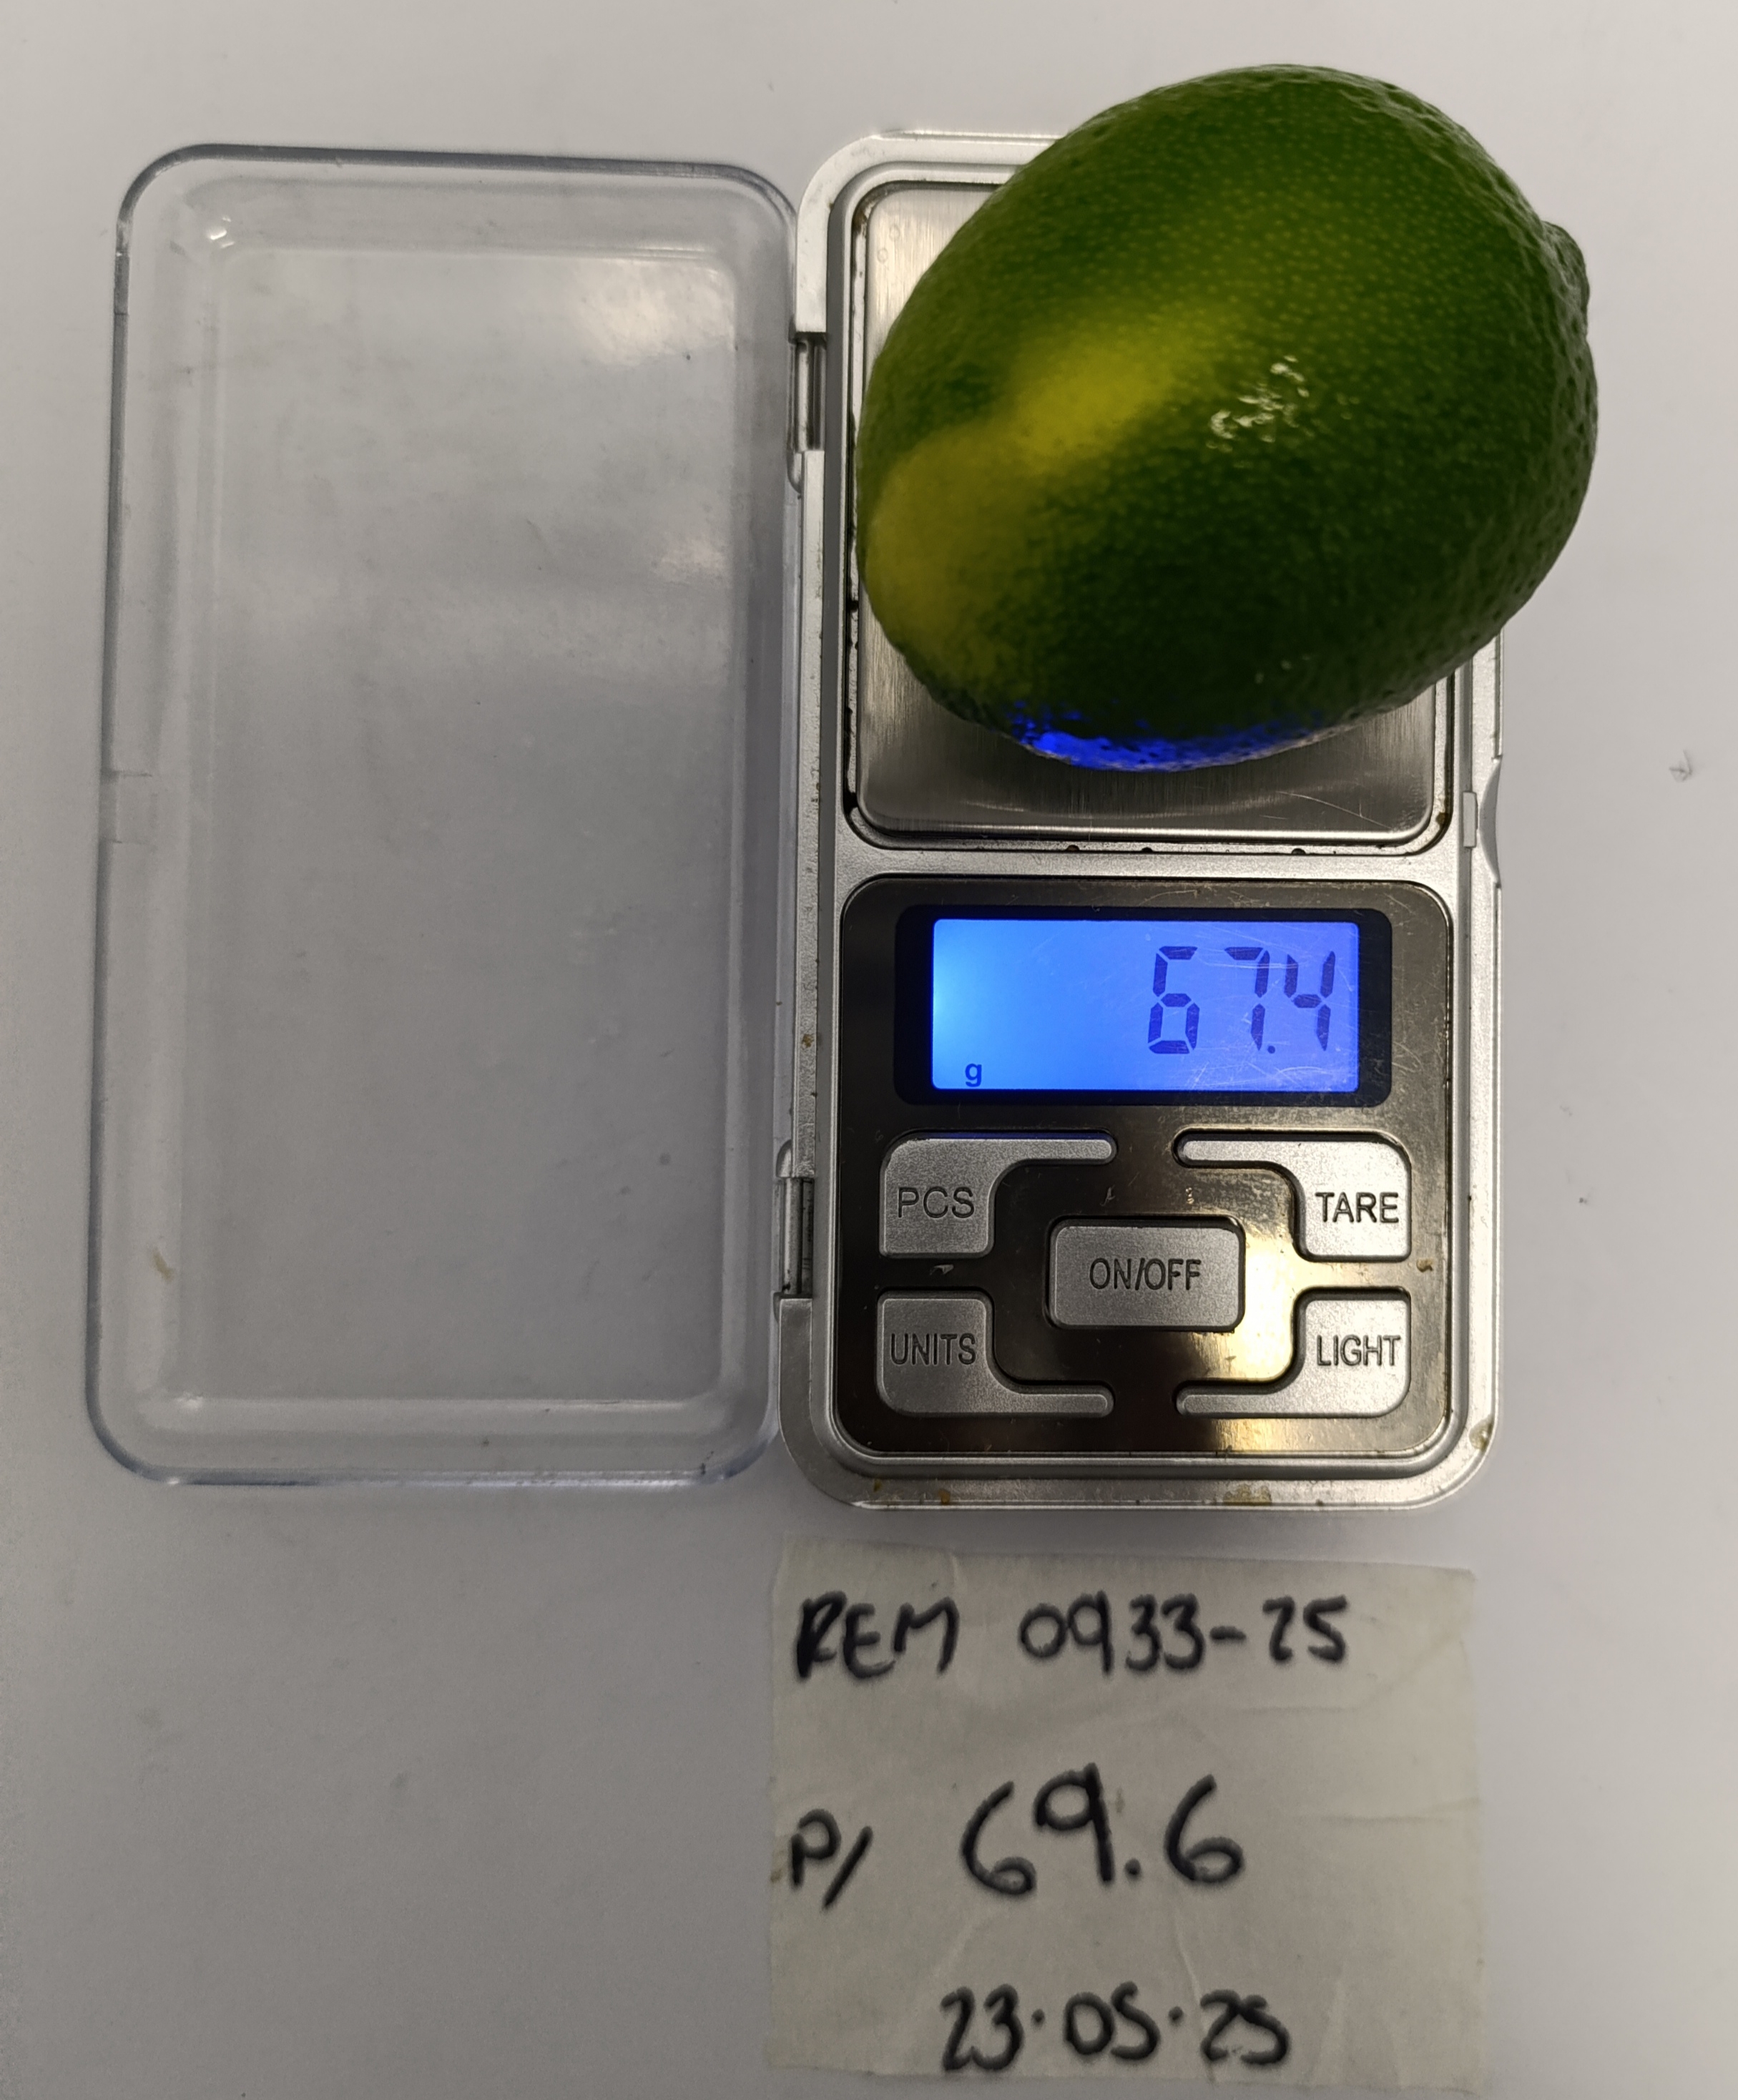 67.4
g
PCS
TARE
ON/OFF
UNITS
LIGHT
REM 0933-25
P/ 69.6
23.05.25